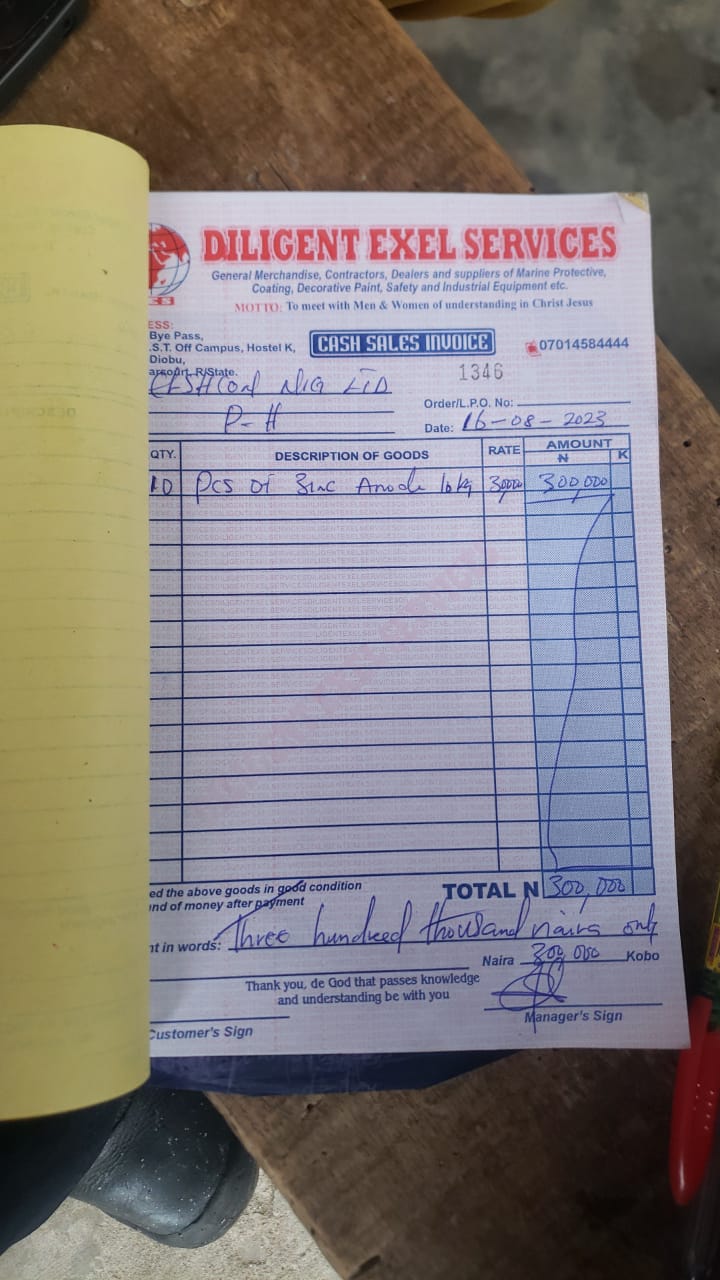 DILIGENT EXEL SERVICES
General Merchandise, Contractors, Dealers and suppliers of Marine Protective,
Coating, Decorative Paint, Safety and Industrial Equipment etc.
MOTTO: To meet with Men & Women of understanding in Christ Jesus
ESS:
Bye Pass,
.S.T. Off Campus, Hostel K,
Diobu,
arcourt, R/State.
CASH SALES INVOICE
07014584444
1346
NIG LTD
P-H
Order/L.P.O. No:
Date: 16-08-2023
QTY. DESCRIPTION OF GOODS RATE AMOUNT
N K
10 Pcs of Zinc Anode 10kg 30,000 300,000
ed the above goods in good condition
nd of money after payment
TOTAL N 300,000
nt in words: Three hundred thousand naira only
Naira 300,000 Kobo
Thank you, de God that passes knowledge
and understanding be with you
Customer's Sign
Manager's Sign